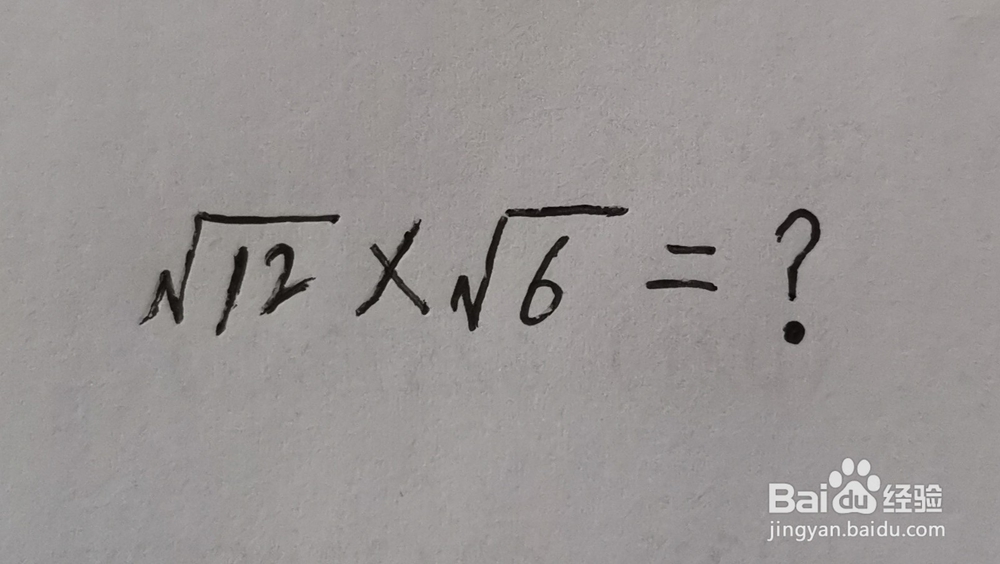 √12 × √6 = ?
Baidu 经验
jingyan.baidu.com